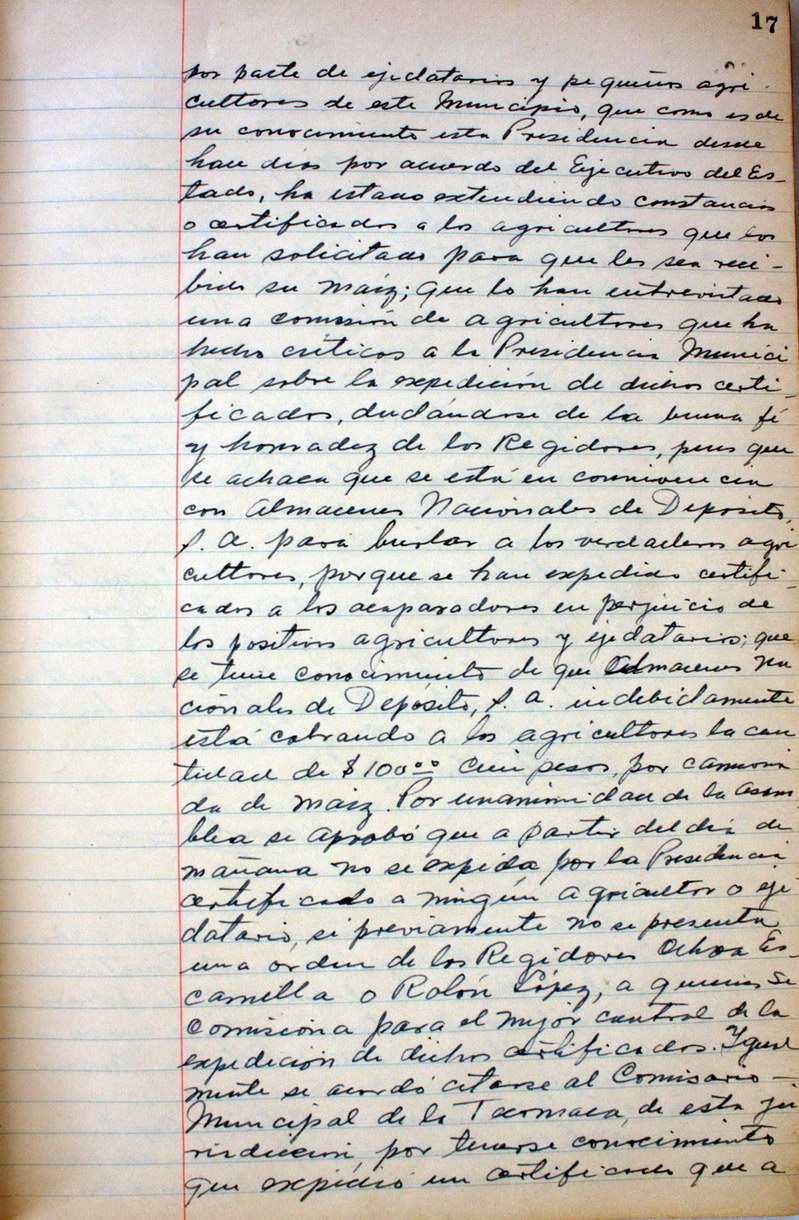 17
por parte de ejidatarios y pequeños agri-
cultores de este Municipio, que como es de
su conocimiento esta Presidencia desde
hace días por acuerdo del Ejecutivo del Es-
tado, ha estado extendiendo constancias
o certificados a los agricultores que los
han solicitado para que les sea reci-
bido su maíz; que lo han entrevistado
una comisión de agricultores que ha
hecho críticas a la Presidencia Munici
pal sobre la expedición de dichos certi-
ficados, dudándose de la buena fé
y honradez de los Regidores, pues que
se achaca que se está en connivencia
con Almacenes Nacionales de Depósito,
S. A. para burlar a los verdaderos agri
cultores, porque se han expedido certifi-
cados a los acaparadores en perjuicio de
los positivos agricultores y ejidatarios; que
se tiene conocimiento de que Almacenes Na
cionales de Depósito, S. A. indebidamente
está cobrando a los agricultores la can
tidad de $100.00 cien pesos, por camiona
da de maíz. Por unanimidad de la asam
blea se aprobó que a partir del día de
mañana no se expida por la Presidencia
certificado a ningún agricultor o eji
datario, si previamente no se presenta
una orden de los Regidores Ochoa Es-
camilla o Rolón López, a quienes se
comisiona para el mejor control de la
expedición de dichos certificados. Igual
mente se acordó citarse al Comisario
Municipal de la Tecomaca, de esta ju
risdicción, por tenerse conocimiento
que expidió un certificado que a